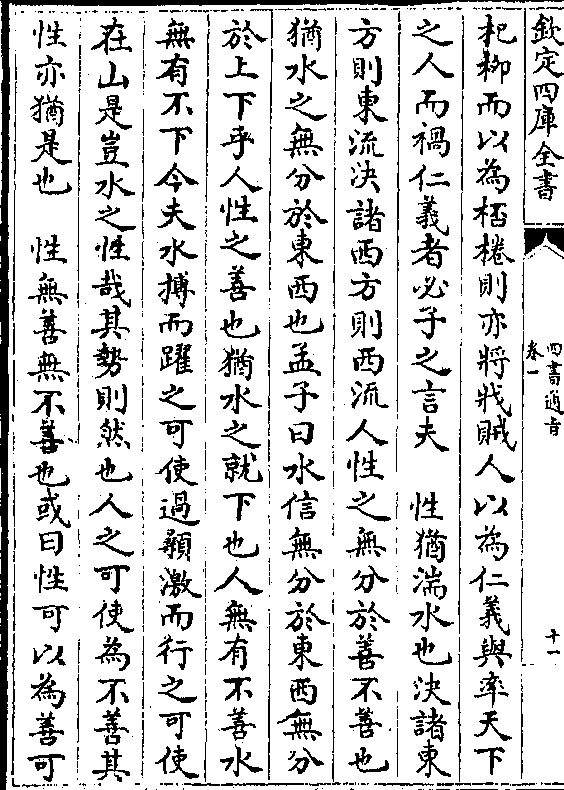 欽定四庫全書
四書通旨
卷一
十一
杞柳而以為桮棬則亦將戕賊人以為仁義與率天下
之人而禍仁義者必子之言夫　性猶湍水也決諸東
方則東流決諸西方則西流人性之無分於善不善也
猶水之無分於東西也孟子曰水信無分於東西無分
於上下乎人性之善也猶水之就下也人無有不善水
無有不下今夫水搏而躍之可使過顙激而行之可使
在山是豈水之性哉其勢則然也人之可使為不善其
性亦猶是也　性無善無不善也或曰性可以為善可